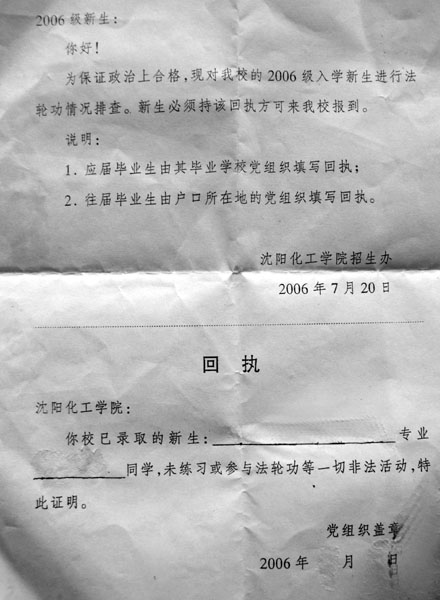 2006级新生:
你好!
为保证政治上合格,现对我校的2006级入学新生进行法
轮功情况排查。新生必须持该回执方可来我校报到。
说明:
1. 应届毕业生由其毕业学校党组织填写回执;
2. 往届毕业生由户口所在地的党组织填写回执。
沈阳化工学院招生办
2006年7月20日
回 执
沈阳化工学院:
你校已录取的新生:专业
同学,未练习或参与法轮功等一切非法活动,特
此证明。
党组织盖章
2006年 月 日